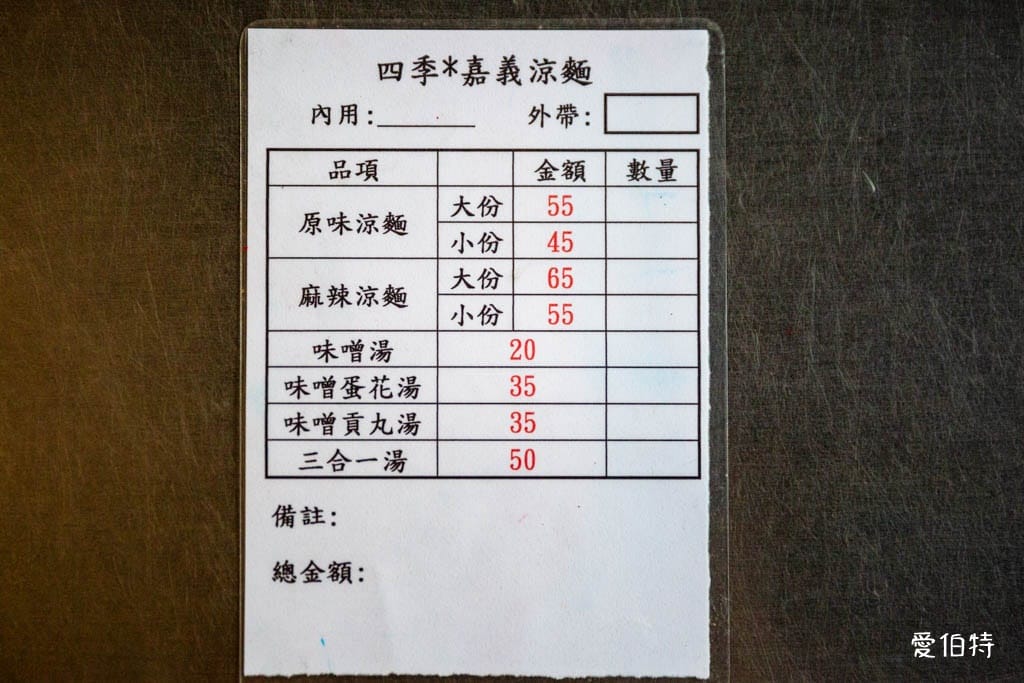 四季*嘉義涼麵
內用:________ 外帶:
品項 金額 數量
原味涼麵 大份 55
小份 45
麻辣涼麵 大份 65
小份 55
味噌湯 20
味噌蛋花湯 35
味噌貢丸湯 35
三合一湯 50
備註:
總金額:
愛伯特